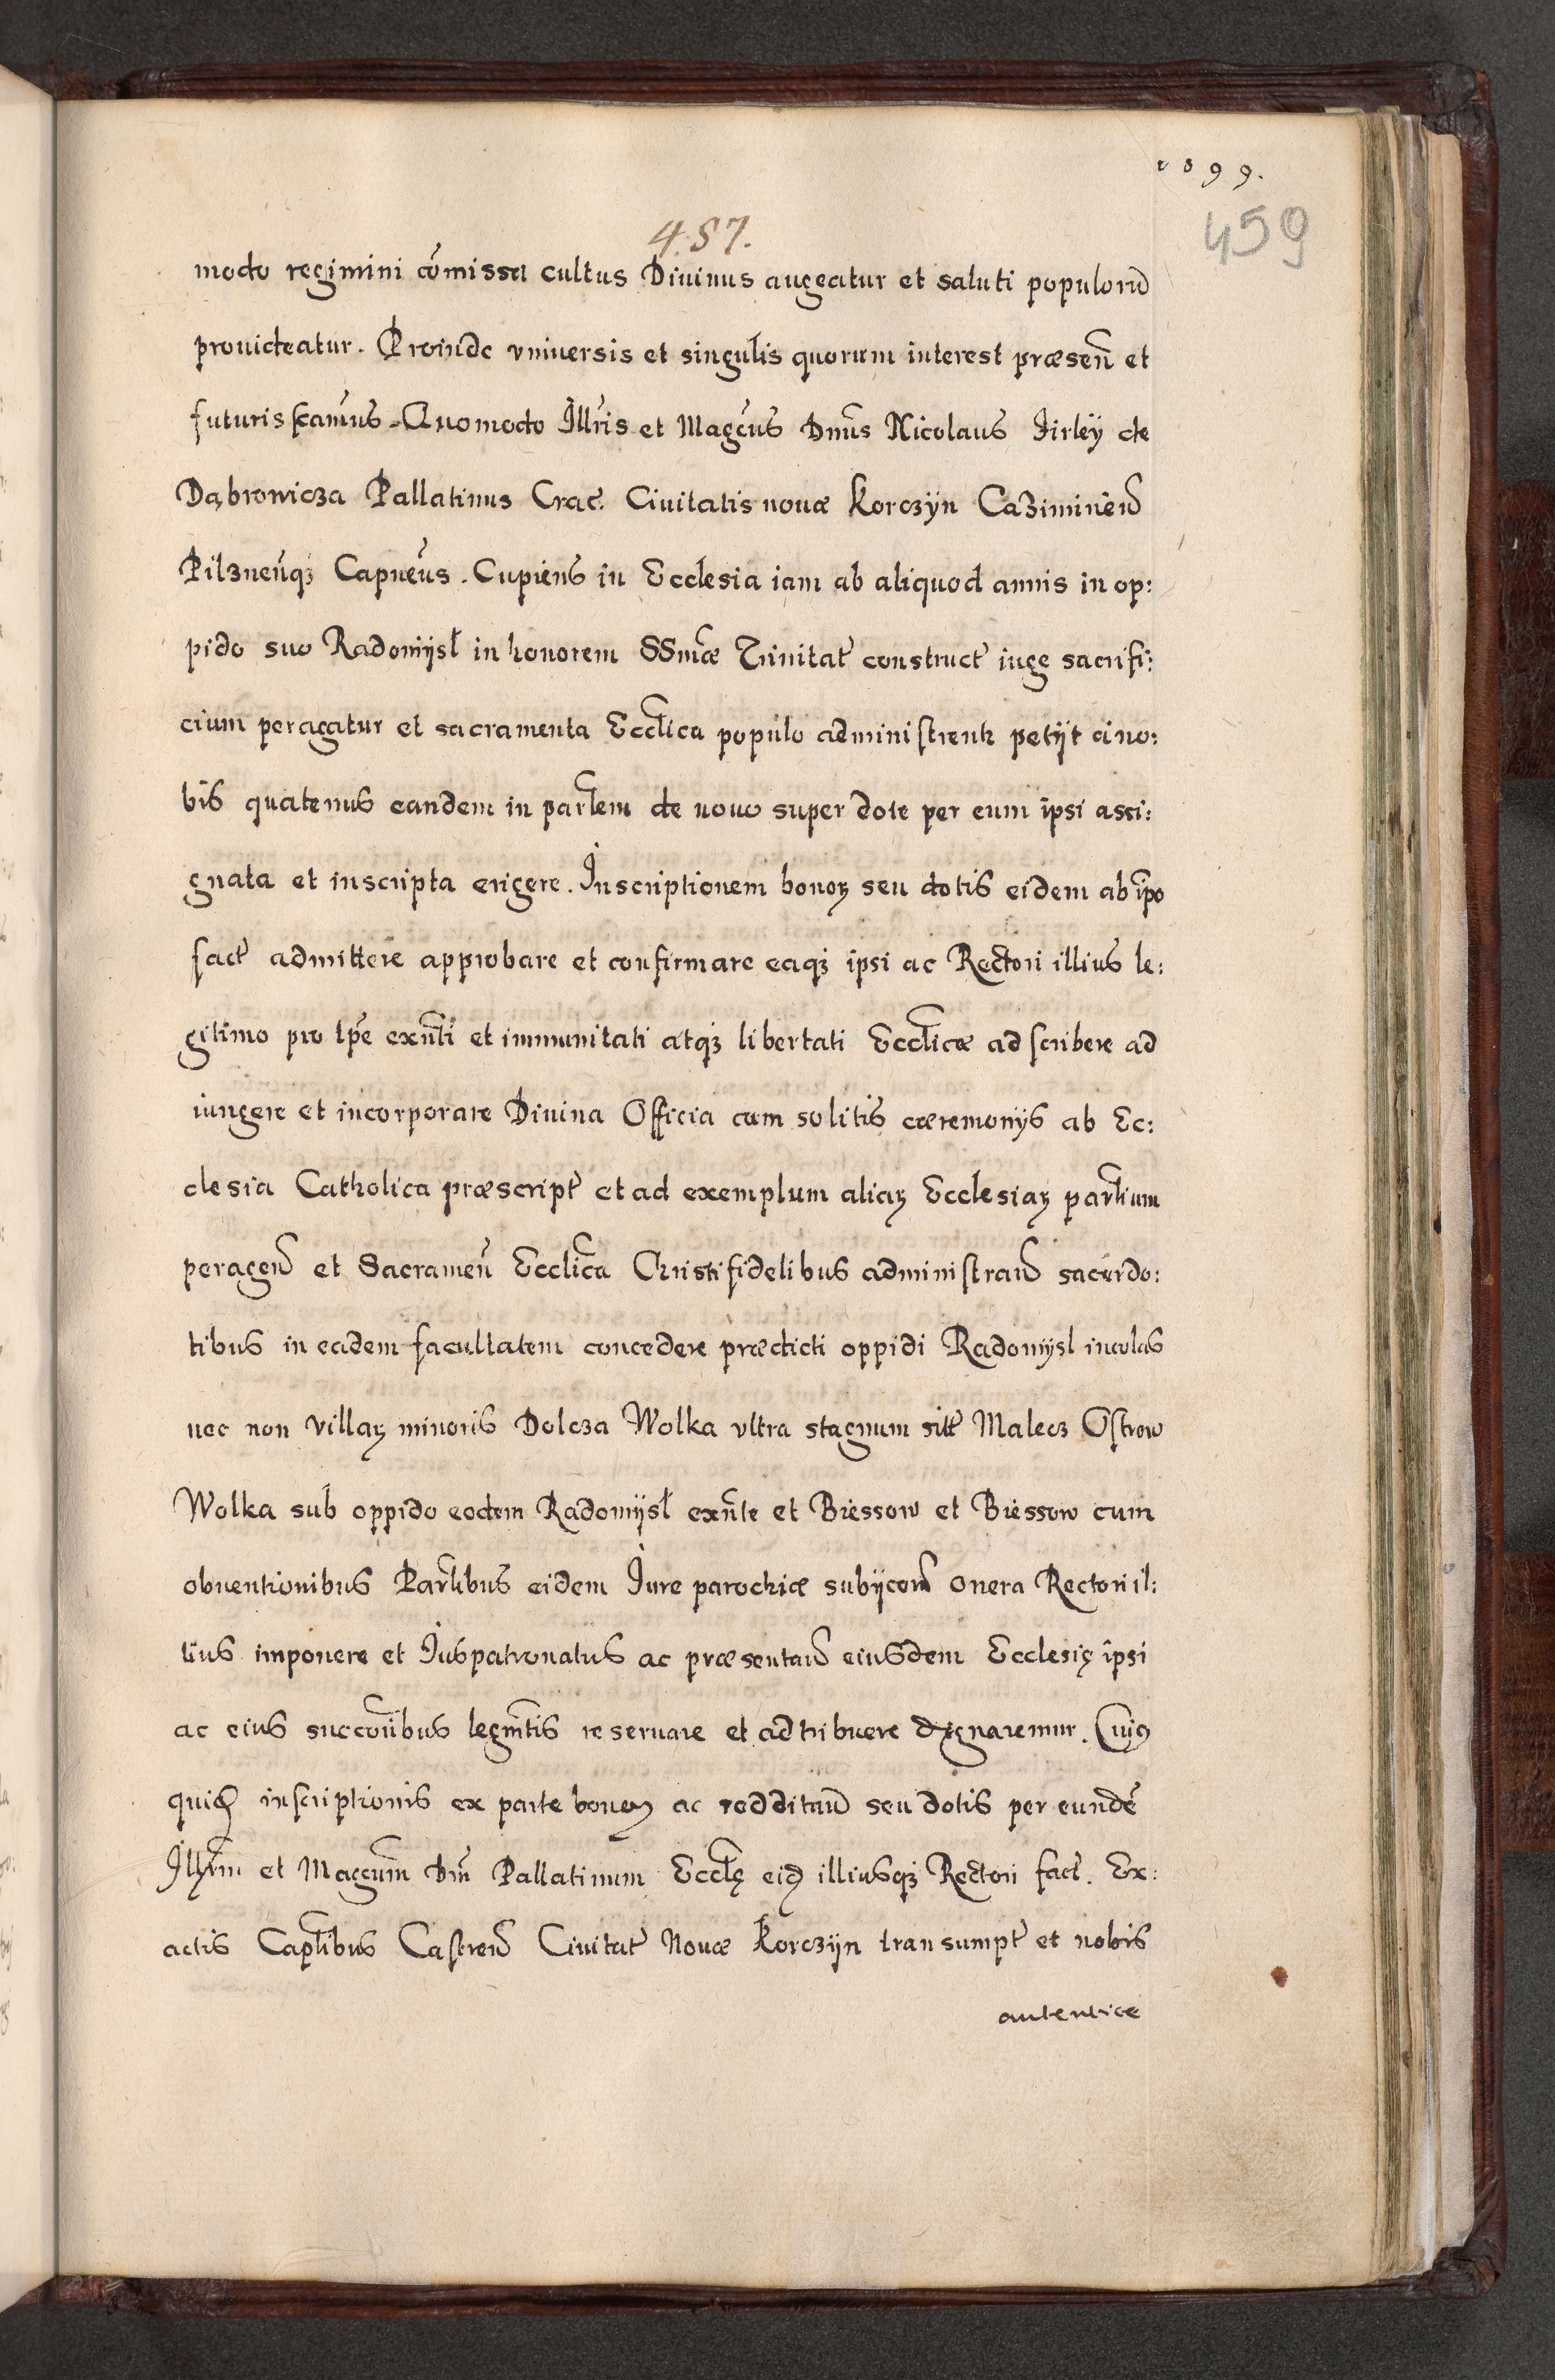 1599.
459
457.
modo regimini com̃issa cultus Diuinus augeatur et saluti populorũ
prouideatur. Proinde vniuersis et singulis quorum interest præseñ et
futuris scam̃us. Quomodo Illr̃is et Magc̃us Dnũs Nicolaus Firley de
Dąbrowicza Pallatinus Crac̃. Ciuitatis nouæ Korczÿn Cazimireñ
Pilzneñq₃ Capneũs. Cupiens in Ecclesia iam ab aliquod annis in op:
pido suo Radomÿsl in honorem SSmæ̃ Trinitat̃ construct̃ iuge sacrifi:
cium peragatur et sacramenta Ecclic̃a populo administrentr petÿt a no:
bis quatenus eandem in parlẽm de nouo super dote per eum ipsi assi:
gnata et inscripta erigere. Inscriptionem bonoꝝ seu dotis eidem ab ip̃o
fact̃ admittere approbare et confirmare eaq₃ ipsi ac Rectori illius le:
gitimo pro tp̃e exñti et immunitati atq₃ libertati Ecclic̃æ ad scribere ad
iungere et incorporare Diuina Officia cum solitis cæremonÿs ab Ec:
clesia Catholica præscript̃ et ad exemplum aliaꝝ Ecclesiaꝝ parl̃ium
perageñ et Sacrameñ Ecclic̃a Christifidelibus administrañ sacerdo:
tibus in eadem facultatem concedere prædicti oppidi Radomÿsl incolas
nec non villaꝝ minoris Dolcza Wolka vltra stagnum sitt̃ Malecz Ostrow
Wolka sub oppido eodem Radomÿsl exñte et Biessow et Biessow cum
obuentionibus Parl̃ibus eidem Iure parochiæ subÿceñ onera Rectori il:
lius imponere et Iuspatronatus ac præsentañ eiusdem Ecclesię ipsi
ac eius succor̃ibus legmt̃is reseruare et adtribuere dignaremur. Cuiꝰ
quid̃ inscriptionis ex parte bonoꝝ ac reddituũ seu dotis per eundẽ
Illrm̃ et Magcum̃ Dm̃ Pallatinum Eccl̃ę eid̃ illiusq₃ Rectori fact̃. Ex:
actis Capl̃ibus Castreñ Ciuitat̃ Nouæ Korczÿn transumpt̃ et nobis
autentice